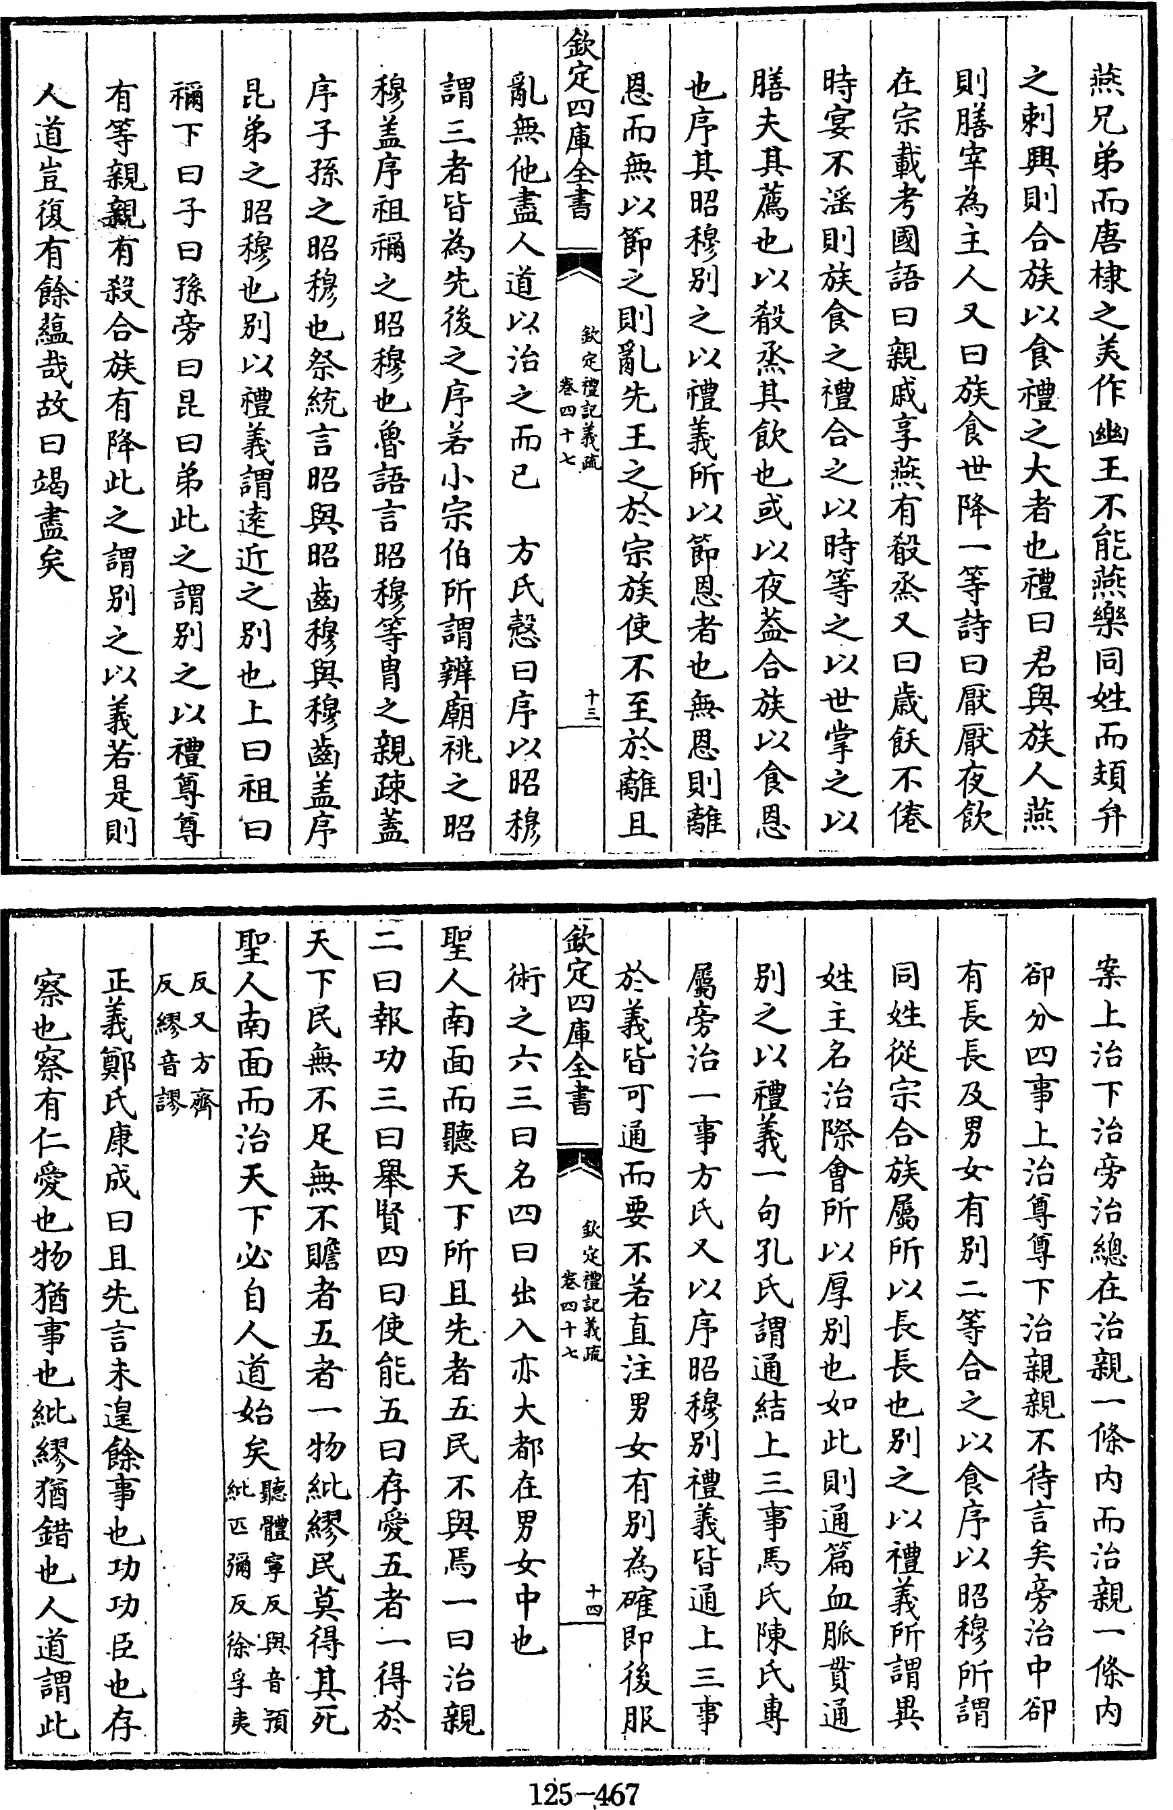 燕兄弟而唐棣之美作幽王不能燕樂同姓而頍弁
之刺興則合族以食禮之大者也禮曰君與族人燕
則膳宰為主人又曰族食世降一等詩曰厭厭夜飲
在宗載考國語曰親戚享燕有殽烝又曰歲飫不倦
時宴不滛則族食之禮合之以時等之以世掌之以
膳夫其薦也以殽烝其飲也或以夜葢合族以食恩
也序其昭穆别之以禮義所以節恩者也無恩則離
恩而無以節之則亂先王之於宗族使不至於離且
欽定四庫全書
欽定禮記義疏
卷四十七
十三
亂無他盡人道以治之而已 方氏慤曰序以昭穆
謂三者皆為先後之序若小宗伯所謂辨廟祧之昭
穆盖序祖禰之昭穆也魯語言昭穆等胄之親疎蓋
序子孫之昭穆也祭統言昭與昭齒穆與穆齒盖序
昆弟之昭穆也别以禮義謂逺近之别也上曰祖曰
禰下曰子曰孫旁曰昆曰弟此之謂别之以禮尊尊
有等親親有殺合族有降此之謂别之以義若是則
人道豈復有餘藴哉故曰竭盡矣
案上治下治旁治總在治親一條内而治親一條内
卻分四事上治尊尊下治親親不待言矣旁治中卻
有長長及男女有别二等合之以食序以昭穆所謂
同姓從宗合族屬所以長長也别之以禮義所謂異
姓主名治際會所以厚别也如此則通篇血脈貫通
别之以禮義一句孔氏謂通結上三事馬氏陳氏專
屬旁治一事方氏又以序昭穆别禮義皆通上三事
於義皆可通而要不若直注男女有别為確即後服
欽定四庫全書
欽定禮記義疏
卷四十七
十四
術之六三曰名四曰出入亦大都在男女中也
聖人南面而聽天下所且先者五民不與焉一曰治親
二曰報功三曰舉賢四曰使能五曰存愛五者一得於
天下民無不足無不贍者五者一物紕繆民莫得其死
聖人南面而治天下必自人道始矣
聽體寧反與音預
紕匹彌反徐孚夷
反又方齊
反繆音謬
正義鄭氏康成曰且先言未遑餘事也功功臣也存
察也察有仁愛也物猶事也紕繆猶錯也人道謂此
125-467